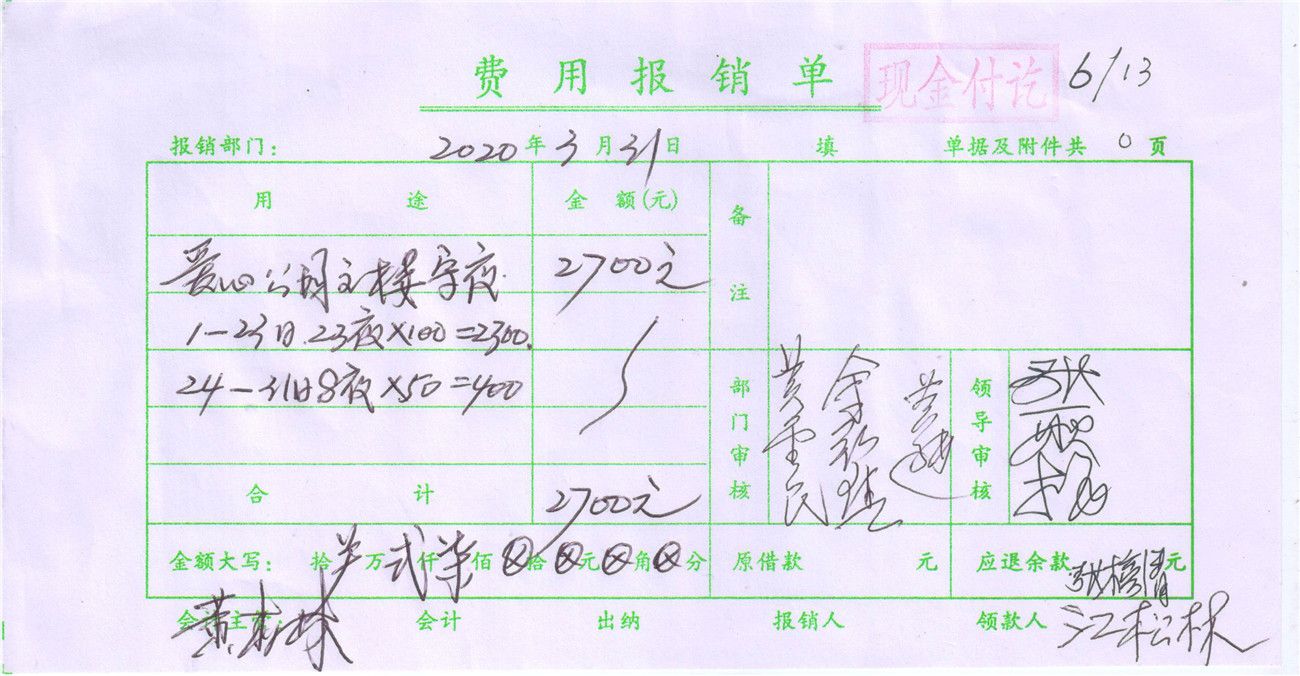 费用报销单 现金付讫 6/13
报销部门： 2020年3月31日 填 单据及附件共 0 页
用途 金额(元) 备注
爱心公园主楼守夜 2700元
1-23日.23夜×100=2300.
24-31日8夜×50=400
部门审核 黄 领导审核
合计 2700元
金额大写： 拾 万 弍仟 柒佰 ⊗拾 ⊗元 ⊗角 ⊗分 原借款 元 应退余款 元
会计主管 会计 出纳 报销人 领款人 江松林